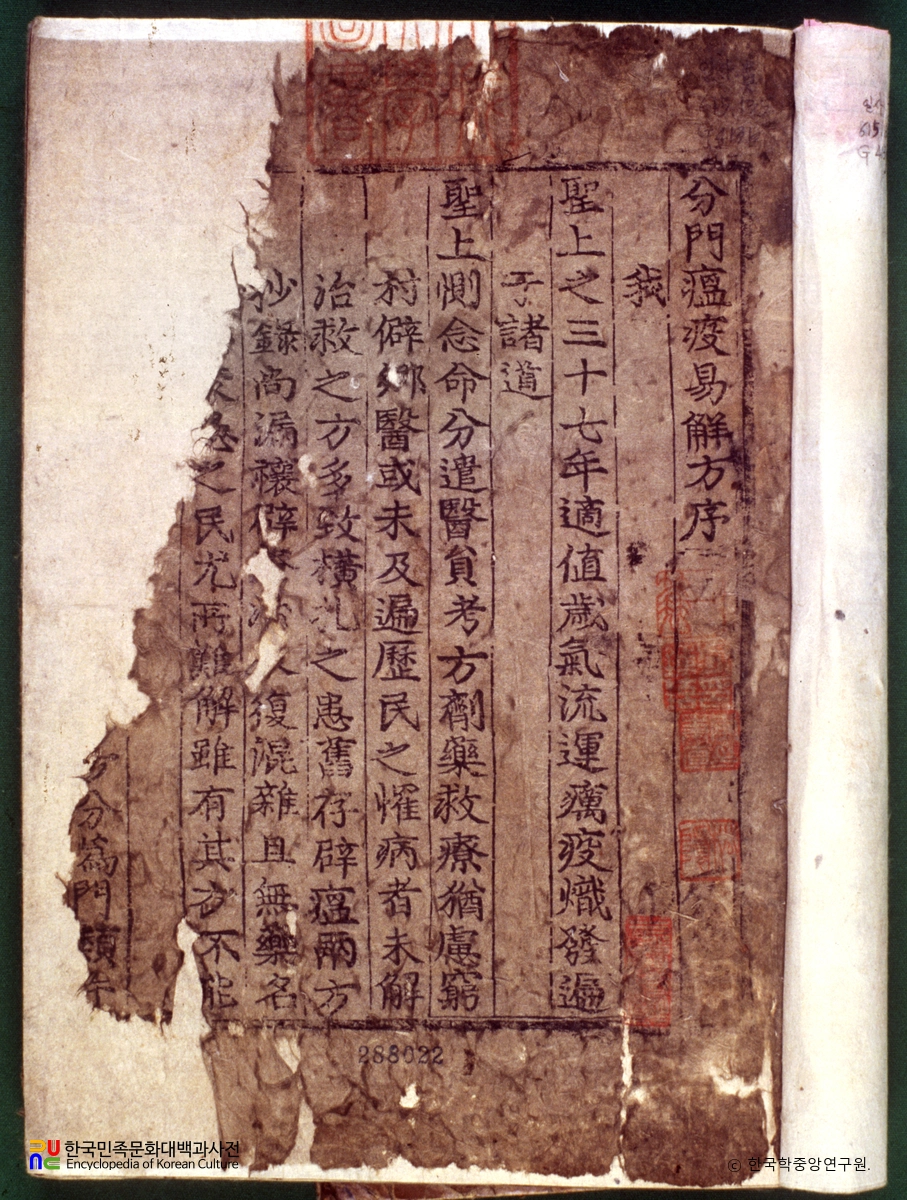 分門瘟疫易解方序
我
聖上之三十七年適値歲氣流運癘疫熾發遍
于諸道
聖上惻念命分遣醫員考方劑藥救療猶慮窮
村僻鄕醫或未及遍歷民之懼病者未解
治救之方多致橫札之患舊存辟瘟兩方
抄錄尚漏禳辟 復混雜且無藥名
之民尤再難解雖有其方不能
方分為門
288022
한국민족문화대백과사전
Encyclopedia of Korean Culture
© 한국학중앙연구원.